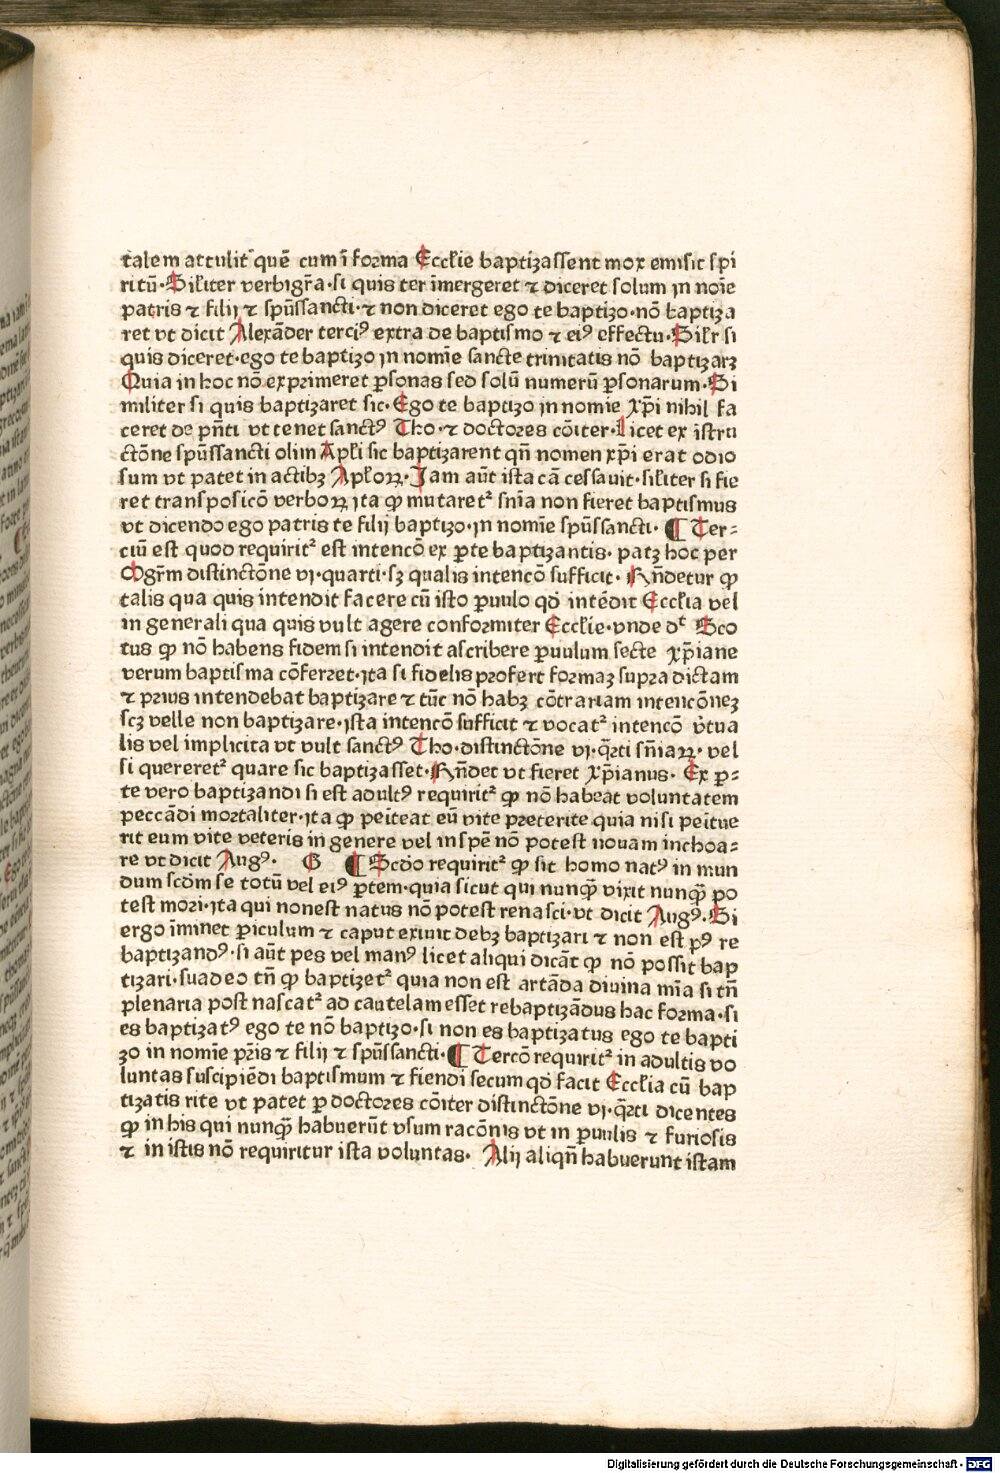 talem attulit᷑ quē cum ī forma Eccƚie baptizassent mox emisit spi
ritū·Siƚiter verbigr̄a·si quis ter īmergeret ⁊ diceret solum ȷn noīe
patris ⁊ filij ⁊ sp̄ussancti·⁊ non diceret ego te baptizo·nō baptiza
ret vt dicit Alexāder terciꝰ extra de baptismo ⁊ eiꝰ effectu·Silr si
quis diceret·ego te baptizo ȷn nomīe sancte trinitatis nō baptizarꝫ
Quia in hoc nō exprimeret ꝑsonas sed solū numerū ꝑsonarum·Si
militer si quis baptizaret sic·Ego te baptizo ȷn nomīe xp̄i nihil fa
ceret de pn̄ti vt tenet sanctꝰ Tho·⁊ doctores cōiter·Licet ex īstru
ctōne sp̄ussancti olim Apƚi sic baptizarent qn̄ nomen xp̄i erat odio
sum vt patet in actibꝫ Apƚoꝝ·Jam aūt ista cā cessauit·siƚiter si fie
ret transposicō verboꝝ ȷta ꝙ mutaretᷣ sn̄ia non fieret baptismus
vt dicendo ego patris te filij baptizo·ȷn nomīe sp̄ussancti· ¶ Ter⸗
ciū est quod requiritᷣ est intencō ex ꝑte baptizantis· patꝫ hoc per
Mgr̄m distinctōne vj·quarti·sꝫ qualis intencō sufficit· Rn̄detur ꝙ
talis qua quis intendit facere cū isto ꝑuulo qd̄ intēdit Eccƚia vel
in generali qua quis vult agere conformiter Eccƚie·vnde dᷤ Sco
tus ꝙ nō habens fidem si intendit ascribere ꝑuulum secte xp̄iane
verum baptisma cōferret·ȷta si fidelis profert formaꝫ supra dictam
⁊ prius intendebat baptizare ⁊ tūc nō habꝫ cōtrariam intencōneꝫ
scꝫ velle non baptizare·ȷsta intencō sufficit ⁊ vocatᷣ intencō v̓tua
lis vel implicita vt vult sanctꝰ Tho·distinctōne vj·q̄rti sn̄iaꝝ· vel
si quereretᷣ quare sic baptizasset·Rn̄det vt fieret xp̄ianus· Ex ꝑ⸗
te vero baptizandi si est adultꝰ requiritᷣ ꝙ nō habeat voluntatem
peccādi mortaliter·ȷta ꝙ peīteat eū vite preterite quia nisi peītue
rit eum vite veteris in genere vel in spē nō potest nouam inchoa⸗
re vt dicit Augꝰ. G ¶ Scd̄o requiritᷣ ꝙ sit homo natꝰ in mun
dum scd̄m se totū vel eiꝰ ꝑtem·quia sicut qui nunq̄ vixit nunq̄ po
test mori·ȷta qui nonest natus nō potest renasci·vt dicit Augꝰ.Si
ergo īminet ꝑiculum ⁊ caput exiuit debꝫ baptizari ⁊ non est pꝰ re
baptizandꝰ·si aūt pes vel manꝰ licet aliqui dicāt ꝙ nō possit bap
tizari·suadeo tn̄ ꝙ baptizetᷣ quia non est artāda diuina mīa si tn̄
plenaria post nascatᷣ ad cautelam esset rebaptizādus hac forma·si
es baptizatꝰ ego te nō baptizo·si non es baptizatus ego te bapti
zo in nomīe pr̄is ⁊ filij ⁊ sp̄ussancti·¶ Tercō requiritᷣ in adultis vo
luntas suscipiēdi baptismum ⁊ fiendi secum qd̄ facit Eccƚia cū bap
tizatis rite vt patet ꝑ doctores cōiter distinctōne vj·q̄rti dicentes
ꝙ in his qui nunq̄ habuerūt vsum racōnis vt in ꝑuulis ⁊ furiosis
⁊ in istis nō requiritur ista voluntas· Alij aliqn̄ habuerunt istam
Digitalisierung gefördert durch die Deutsche Forschungsgemeinschaft - DFG